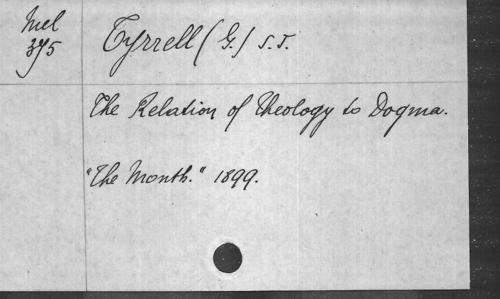 Mel
375
Tyrrell (G.) S.J.
The Relation of Theology to Dogma.
"The Month." 1899.